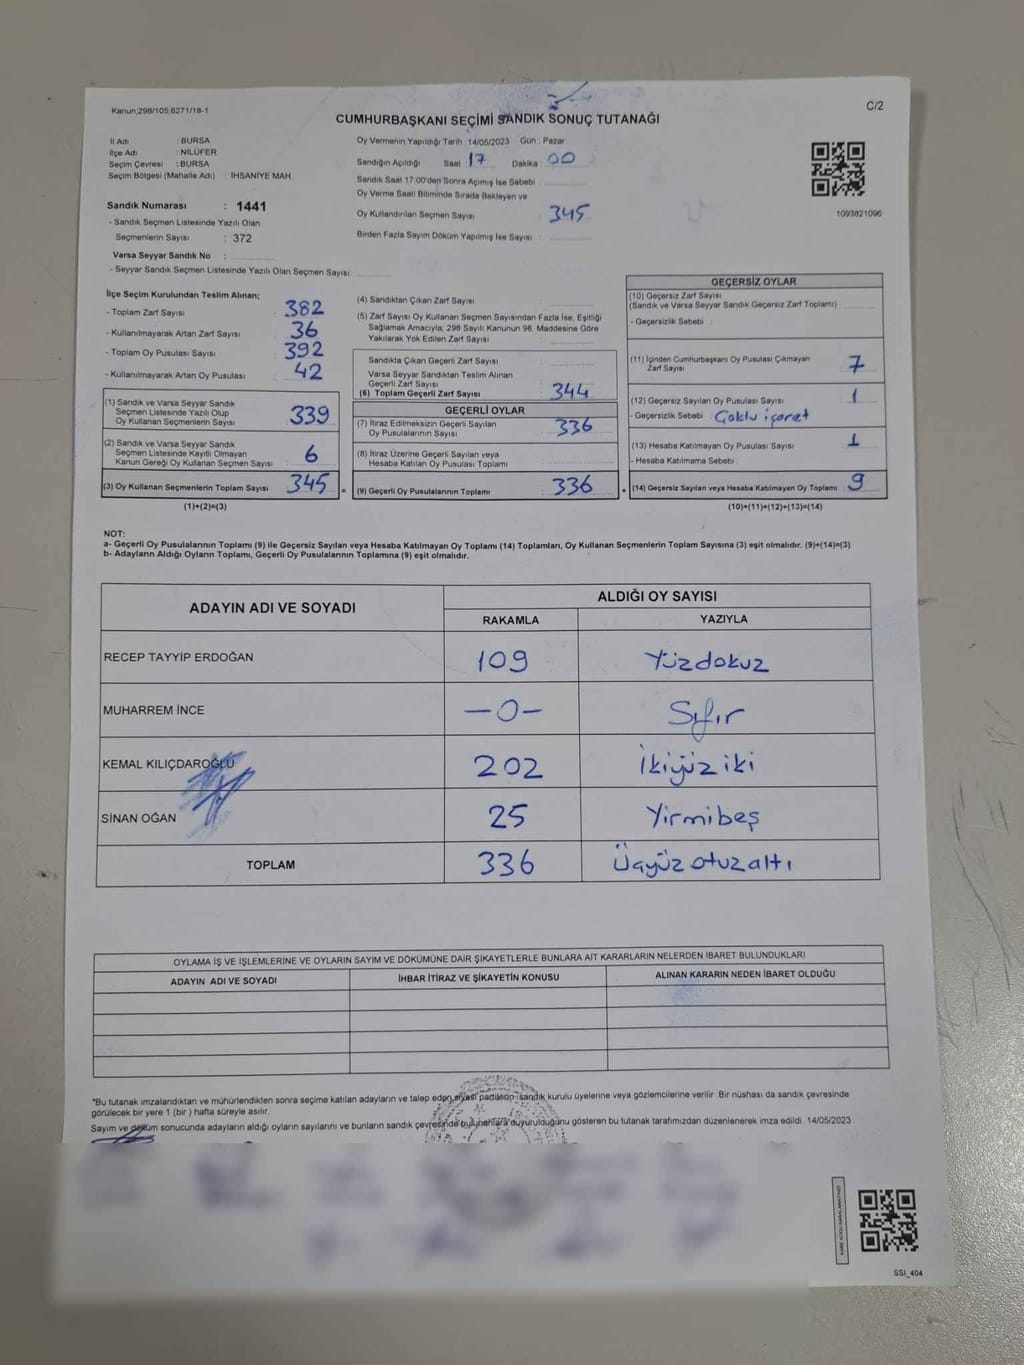 Kanun:298/105,6271/18-1
C/2
CUMHURBAŞKANI SEÇİMİ SANDIK SONUÇ TUTANAĞI
İl Adı : BURSA
İlçe Adı : NİLÜFER
Seçim Çevresi : BURSA
Seçim Bölgesi (Mahalle Adı) : İHSANİYE MAH.
Oy Vermenin Yapıldığı Tarih :14/05/2023 Gün : Pazar
Sandığın Açıldığı Saat 17 Dakika 00
Sandık Saat 17:00'den Sonra Açımış İse Sebebi :
Oy Verme Saati Bitiminde Sırada Bekleyen ve
Oy Kullandırılan Seçmen Sayısı : 345
Birden Fazla Sayım Döküm Yapılmış İse Sayısı :
1093821096
Sandık Numarası : 1441
- Sandık Seçmen Listesinde Yazılı Olan
Seçmenlerin Sayısı : 372
Varsa Seyyar Sandık No :
- Seyyar Sandık Seçmen Listesinde Yazılı Olan Seçmen Sayısı:
İlçe Seçim Kurulundan Teslim Alınan;
- Toplam Zarf Sayısı : 382
- Kullanılmayarak Artan Zarf Sayısı : 36
- Toplam Oy Pusulası Sayısı : 392
- Kullanılmayarak Artan Oy Pusulası : 42
(1) Sandık ve Varsa Seyyar Sandık
Seçmen Listesinde Yazılı Olup
Oy Kullanan Seçmenlerin Sayısı 339
(2) Sandık ve Varsa Seyyar Sandık
Seçmen Listesinde Kayıtlı Olmayan
Kanun Gereği Oy Kullanan Seçmen Sayısı 6
(3) Oy Kullanan Seçmenlerin Toplam Sayısı 345 =
(1)+(2)=(3)
(4) Sandıktan Çıkan Zarf Sayısı :
(5) Zarf Sayısı Oy Kullanan Seçmen Sayısından Fazla İse, Eşitliği
Sağlamak Amacıyla, 298 Sayılı Kanunun 98. Maddesine Göre
Yakılarak Yok Edilen Zarf Sayısı :
Sandıkta Çıkan Geçerli Zarf Sayısı :
Varsa Seyyar Sandıktan Teslim Alınan
Geçerli Zarf Sayısı :
(6) Toplam Geçerli Zarf Sayısı : 344
GEÇERLİ OYLAR
(7) İtiraz Edilmeksizin Geçerli Sayılan
Oy Pusulalarının Sayısı : 336
(8) İtiraz Üzerine Geçerli Sayılan veya
Hesaba Katılan Oy Pusulası Toplamı :
(9) Geçerli Oy Pusulalarının Toplamı : 336 +
GEÇERSİZ OYLAR
(10) Geçersiz Zarf Sayısı
(Sandık ve Varsa Seyyar Sandık Geçersiz Zarf Toplamı)
- Geçersizlik Sebebi :
(11) İçinden Cumhurbaşkanı Oy Pusulası Çıkmayan
Zarf Sayısı : 7
(12) Geçersiz Sayılan Oy Pusulası Sayısı : 1
- Geçersizlik Sebebi : Çoklu işaret
(13) Hesaba Katılmayan Oy Pusulası Sayısı : 1
- Hesaba Katılmama Sebebi :
(14) Geçersiz Sayılan veya Hesaba Katılmayan Oy Toplamı : 9
(10)+(11)+(12)+(13)=(14)
NOT:
a- Geçerli Oy Pusulalarının Toplamı (9) ile Geçersiz Sayılan veya Hesaba Katılmayan Oy Toplamı (14) Toplamları, Oy Kullanan Seçmenlerin Toplam Sayısına (3) eşit olmalıdır. (9)+(14)=(3)
b- Adayların Aldığı Oyların Toplamı, Geçerli Oy Pusulalarının Toplamına (9) eşit olmalıdır.
ADAYIN ADI VE SOYADI
ALDIĞI OY SAYISI
RAKAMLA YAZIYLA
RECEP TAYYİP ERDOĞAN 109 Yüzdokuz
MUHARREM İNCE —0— Sıfır
KEMAL KILIÇDAROĞLU 202 İkiyüz iki
SİNAN OĞAN 25 Yirmibeş
TOPLAM 336 Üçyüz otuz altı
OYLAMA İŞ VE İŞLEMLERİNE VE OYLARIN SAYIM VE DÖKÜMÜNE DAİR ŞİKAYETLERLE BUNLARA AİT KARARLARIN NELERDEN İBARET BULUNDUKLARI
ADAYIN ADI VE SOYADI İHBAR İTİRAZ VE ŞİKAYETİN KONUSU ALINAN KARARIN NEDEN İBARET OLDUĞU
*Bu tutanak imzalandıktan ve mühürlendikten sonra seçime katılan adayların ve talep eden siyasi partilerin sandık kurulu üyelerine veya gözlemcilerine verilir. Bir nüshası da sandık çevresinde
görülecek bir yere 1 (bir ) hafta süreyle asılır.
Sayım ve döküm sonucunda adayların aldığı oyların sayılarını ve bunların sandık çevresinde bulunanlara duyurulduğunu gösteren bu tutanak tarafımızdan düzenlenerek imza edildi. 14/05/2023
SSI_404